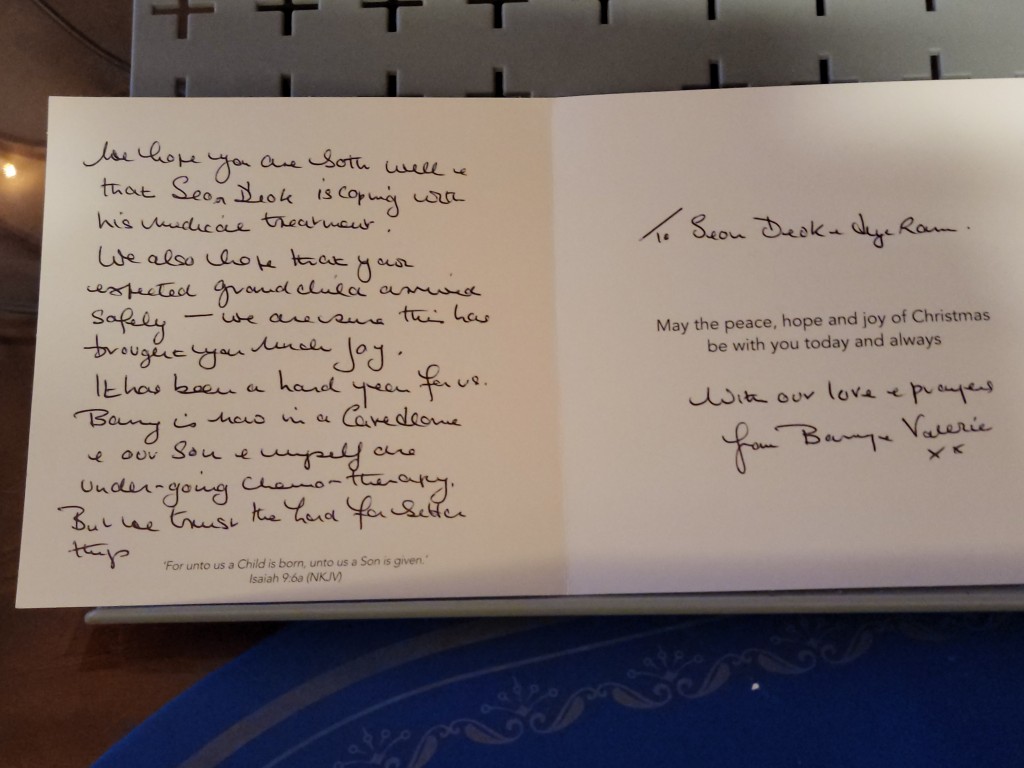 We hope you are both well &
that Seon Deok is coping with
his medical treatment.
We also hope that your
expected grandchild arrived
safely — we are sure this has
brought you much Joy.
It has been a hard year for us.
Barry is now in a Care Home
& our Son & myself are
under-going chemo-therapy.
But we trust the Lord for better
things
'For unto us a Child is born, unto us a Son is given.'
Isaiah 9:6a (NKJV)
To Seon Deok & Hye Ram.
May the peace, hope and joy of Christmas
be with you today and always
With our love & prayers
from Barry & Valerie
x x